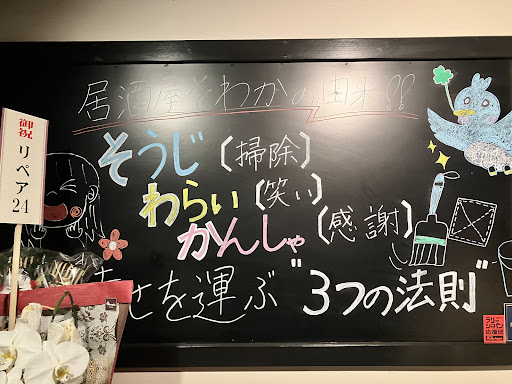 居酒屋そわかの由来!!
そうじ(掃除)
わらい(笑い)
かんしゃ(感謝)
せを運ぶ"3つの法則"
御祝
リペア24
ラリー
ジャパン
応援団